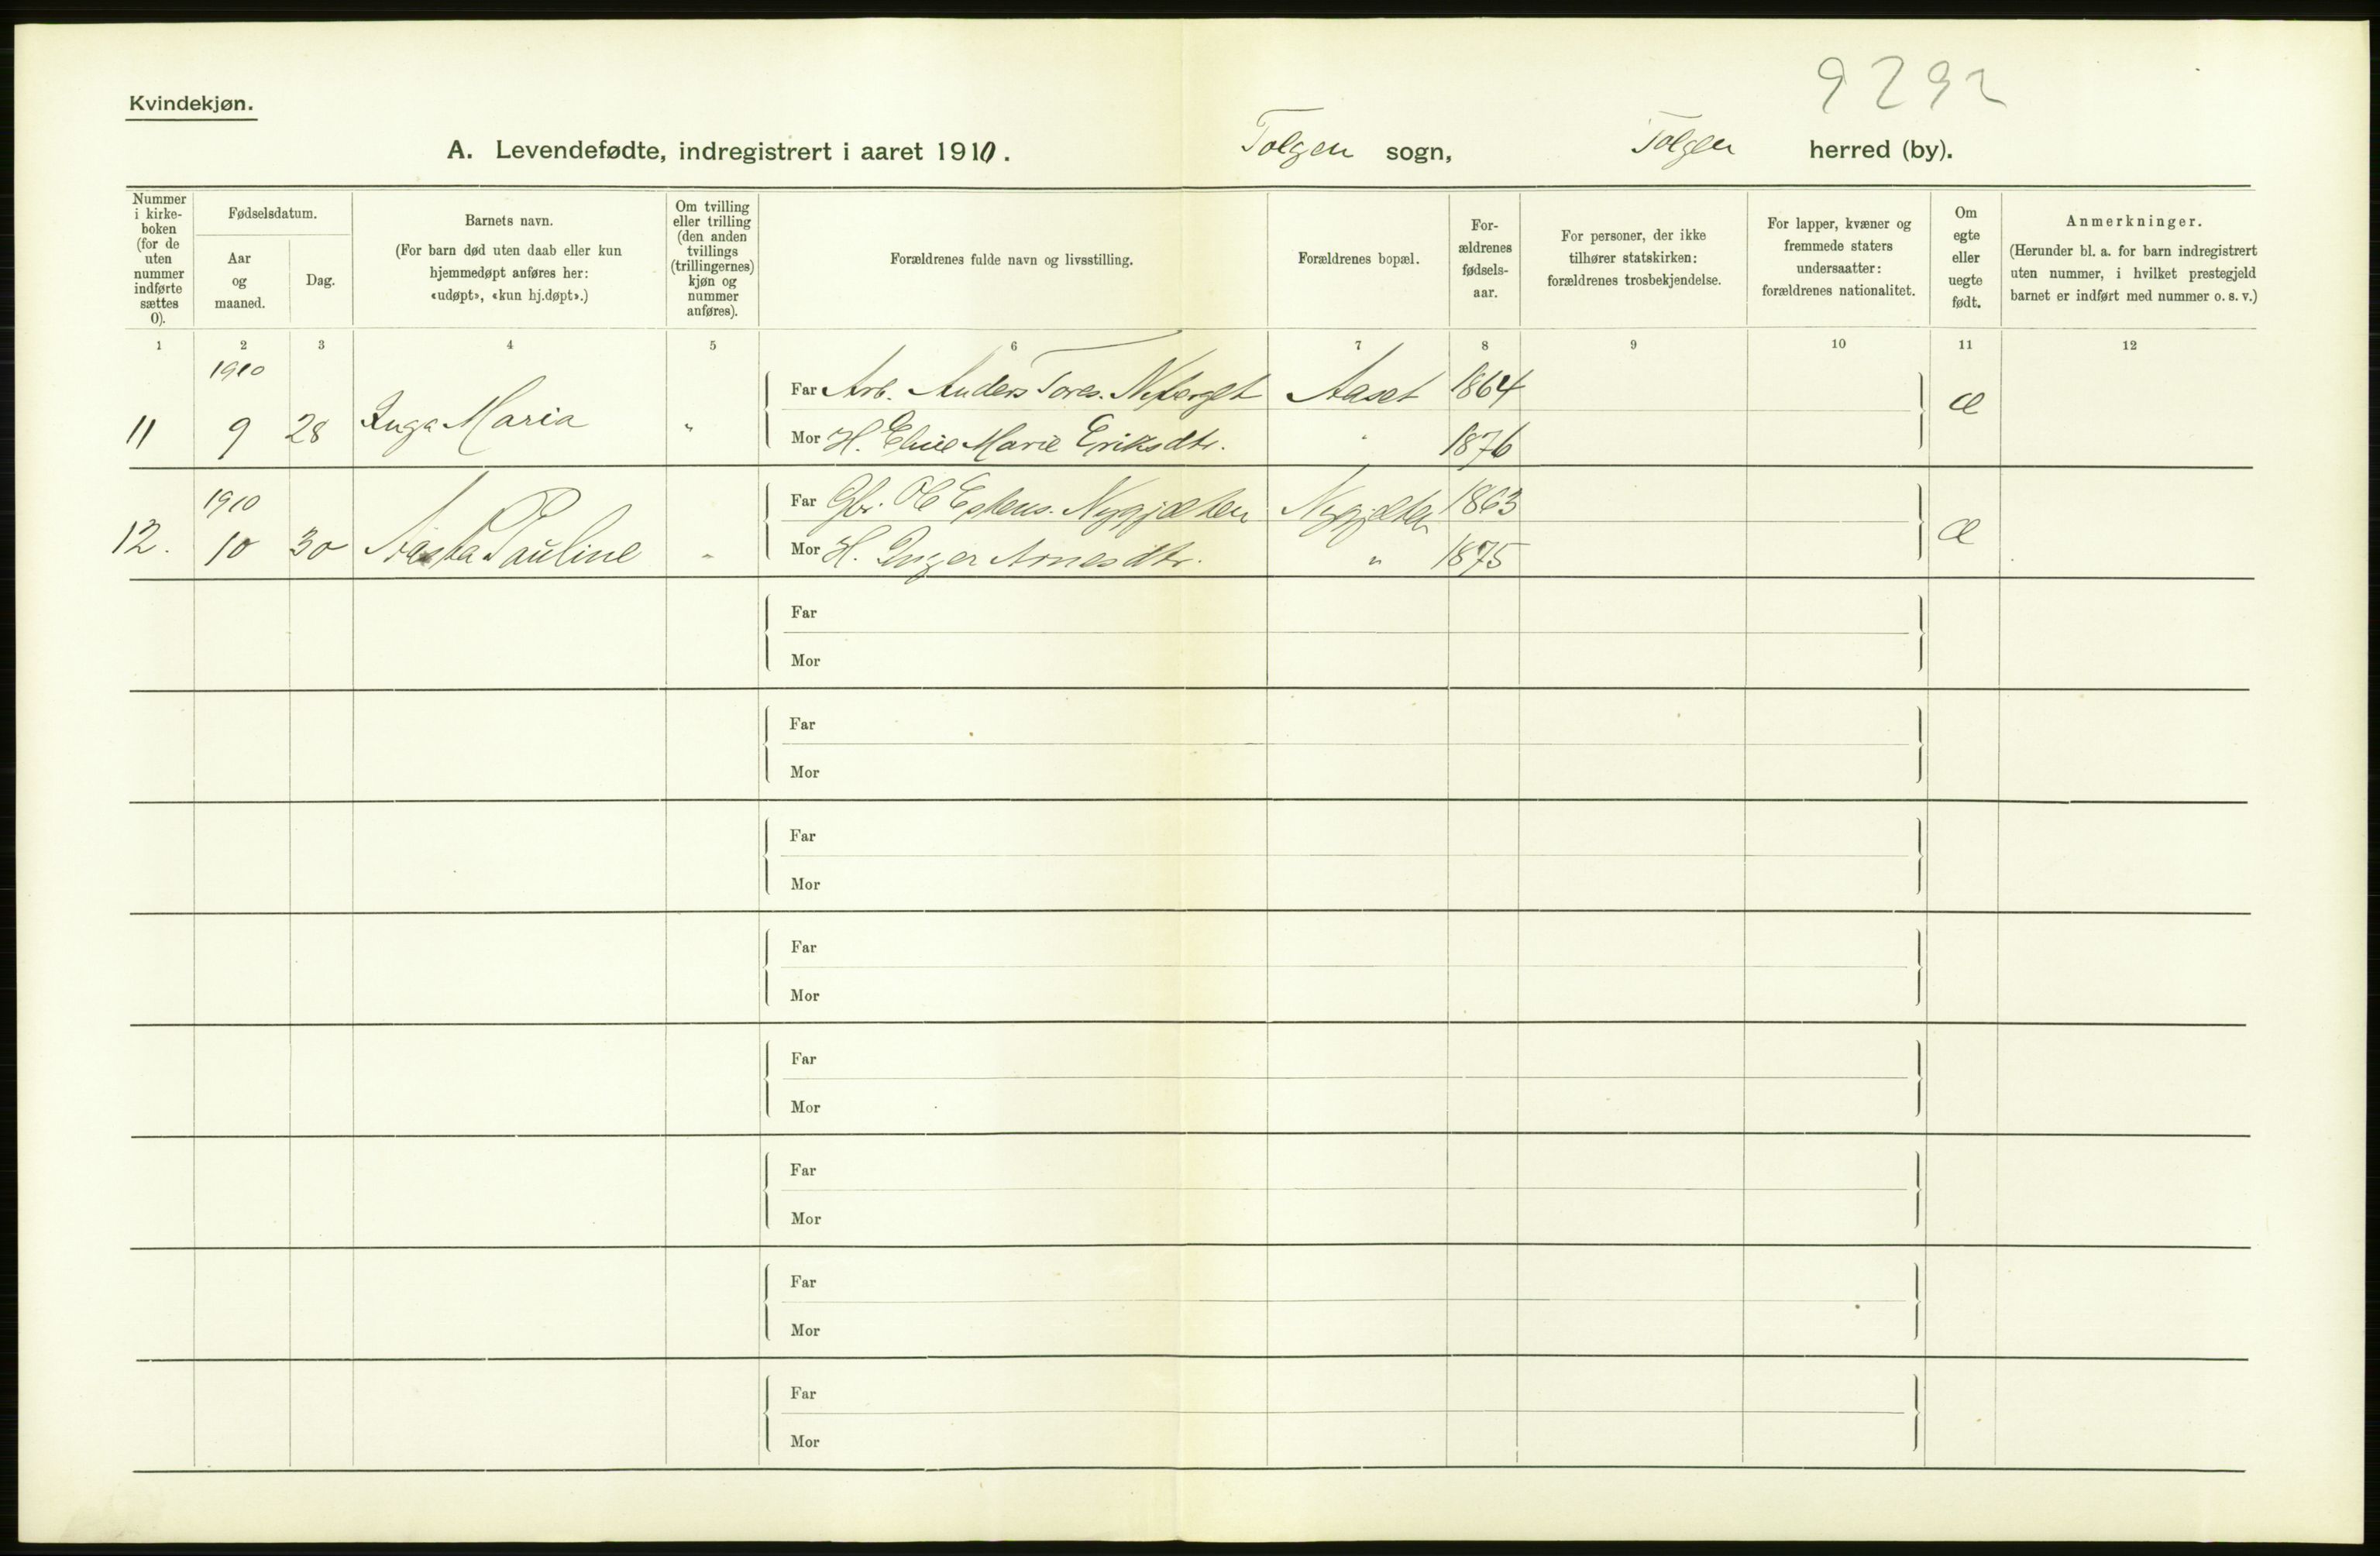 9292
Kvindekjøn.
A. Levendefødte, indregistrert i aaret 1910. Tolgen sogn, Tolgen herred (by).
Nummer i kirke- boken (for de uten nummer indførte sættes 0).
Fødselsdatum.
Aar og maaned.
Dag.
Barnets navn.
(For barn død uten daab eller kun hjemmedøpt anføres her: «udøpt», «kun hj.døpt».)
Om tvilling eller trilling (den anden tvillings (trillingernes) kjøn og nummer anføres).
Forældrenes fulde navn og livsstilling.
Forældrenes bopæl.
For- ældrenes fødsels- aar.
For personer, der ikke tilhører statskirken: forældrenes trosbekjendelse.
For lapper, kvæner og fremmede staters undersaatter: forældrenes nationalitet.
Om egte eller uegte født.
Anmerkninger.
(Herunder bl. a. for barn indregistrert uten nummer, i hvilket prestegjeld barnet er indført med nummer o. s. v.)
1 2 3 4 5 6 7 8 9 10 11 12
1910
Far Arb. Anders Tores. Aaset 1864 æ
11 9 28 Inga Maria " Mor H. Marie Eriksdtr. " 1876
1910
Far Gbr. Ole Nygjelten Nygjelten 1863 æ
12. 10 30 Aasta Pauline " Mor H. Inger Arnesdtr. " 1875
Far
Mor
Far
Mor
Far
Mor
Far
Mor
Far
Mor
Far
Mor
Far
Mor
Far
Mor